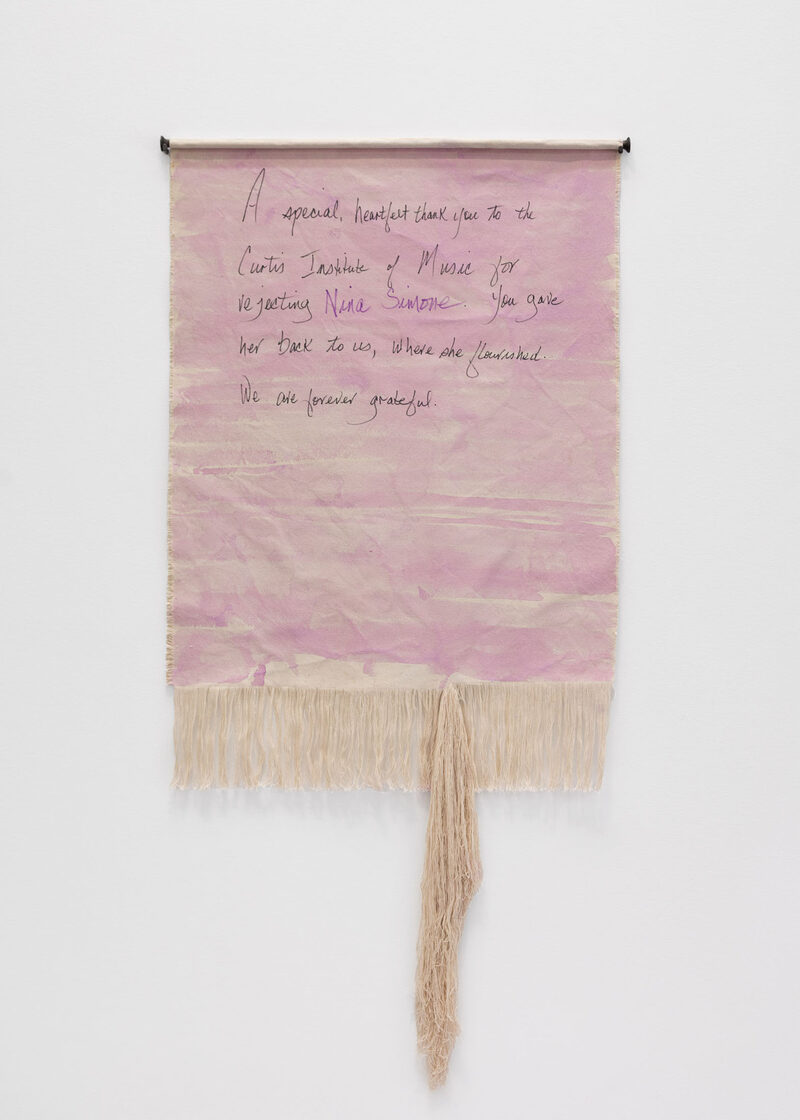 A special, heartfelt thank you to the
Curtis Institute of Music for
rejecting Nina Simone. You gave
her back to us, where she flourished.
We are forever grateful.